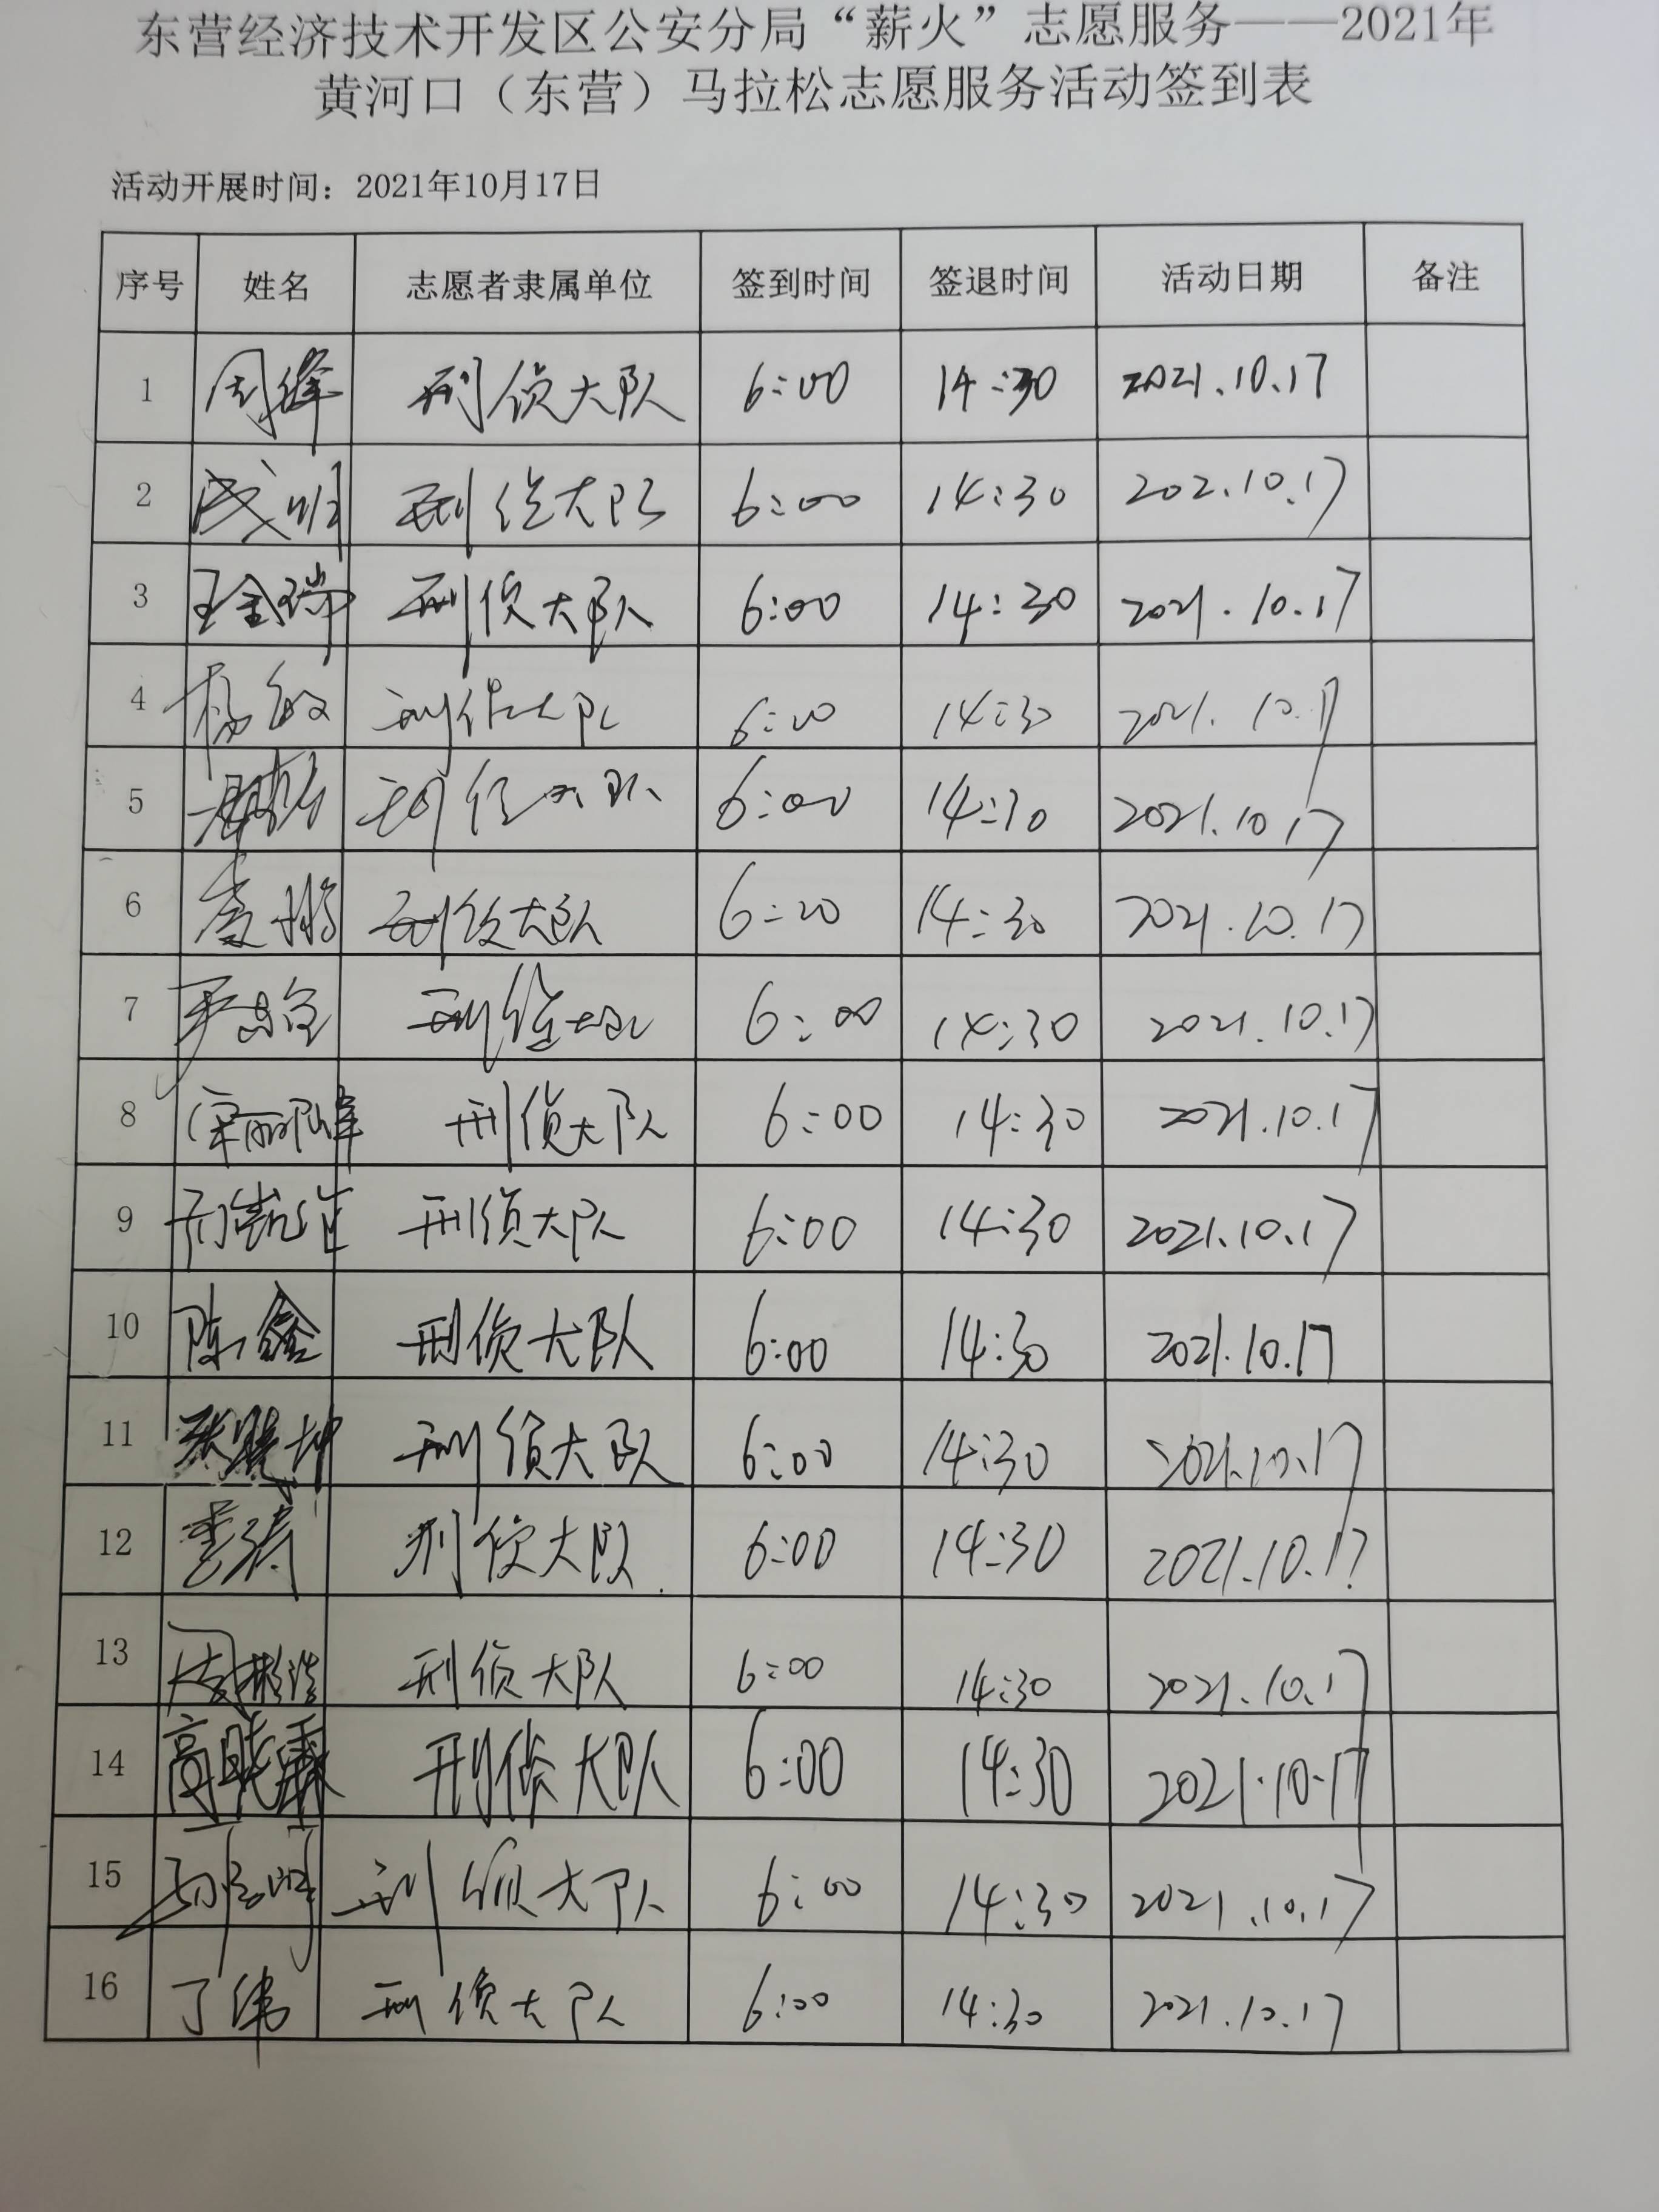 东营经济技术开发区公安分局“薪火”志愿服务——2021年
黄河口（东营）马拉松志愿服务活动签到表
活动开展时间：2021年10月17日
序号 姓名 志愿者隶属单位 签到时间 签退时间 活动日期 备注
1 周锋 刑侦大队 6:00 14:30 2021.10.17
2 成明 刑侦大队 6:00 14:30 202.10.17
3 王金瑞 刑侦大队 6:00 14:30 2021.10.17
4 杨敏 刑侦大队 6:00 14:30 2021.10.17
5 刑侦大队 6:00 14:30 2021.10.17
6 刑侦大队 6:00 14:30 2021.10.17
7 刑侦大队 6:00 14:30 2021.10.17
8 刑侦大队 6:00 14:30 2021.10.17
9 刑侦大队 6:00 14:30 2021.10.17
10 陈鑫 刑侦大队 6:00 14:30 2021.10.17
11 张晓坤 刑侦大队 6:00 14:30 2021.10.17
12 李涛 刑侦大队 6:00 14:30 2021.10.17
13 刑侦大队 6:00 14:30 2021.10.17
14 高晓霖 刑侦大队 6:00 14:30 2021.10.17
15 刑侦大队 6:00 14:30 2021.10.17
16 丁伟 刑侦大队 6:00 14:30 2021.10.17